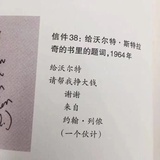 信件38：给沃尔特·斯特拉
奇的书里的题词，1964年
给沃尔特
请帮我挣大钱
谢谢
来自
约翰·列侬
（一个伙计）